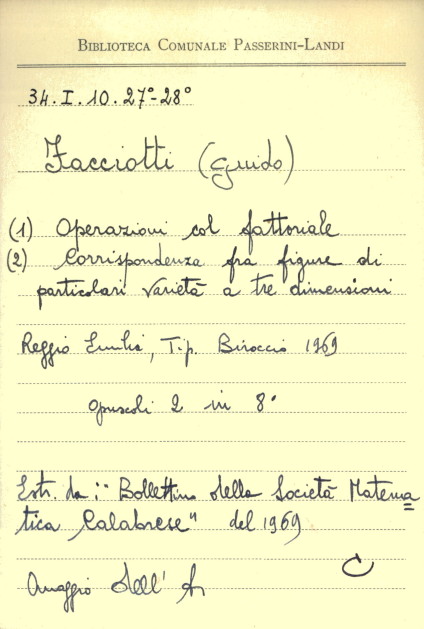 BIBLIOTECA COMUNALE PASSERINI-LANDI
34.I.10.27°-28°
Facciotti (Guido)
(1) Operazioni col fattoriale
(2) Corrispondenza fra figure di
particolari varietà a tre dimensioni
Reggio Emilia, Tip. Biroccio 1969
Opuscoli 2 in 8°
Estr. da: "Bollettino della Società Matema=
tica Calabrese" del 1969
C
Omaggio dell' A.